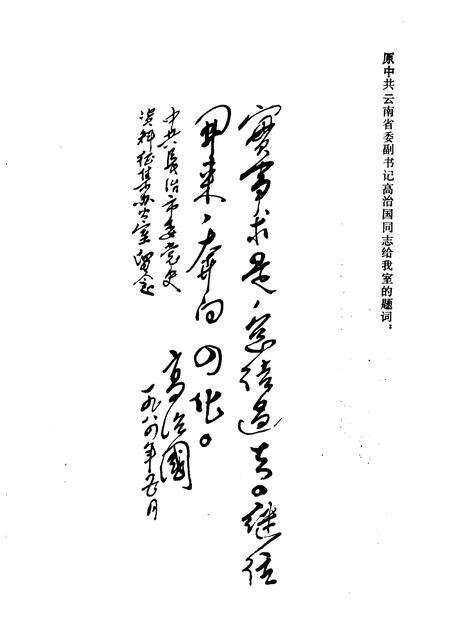 原中共云南省委副书记高治国同志给我室的题词：
實事求是，总结過去。継往
开来，奔向四化。
中共長治市委党史
资料征集办公室留念
高治國
一九八四年五月